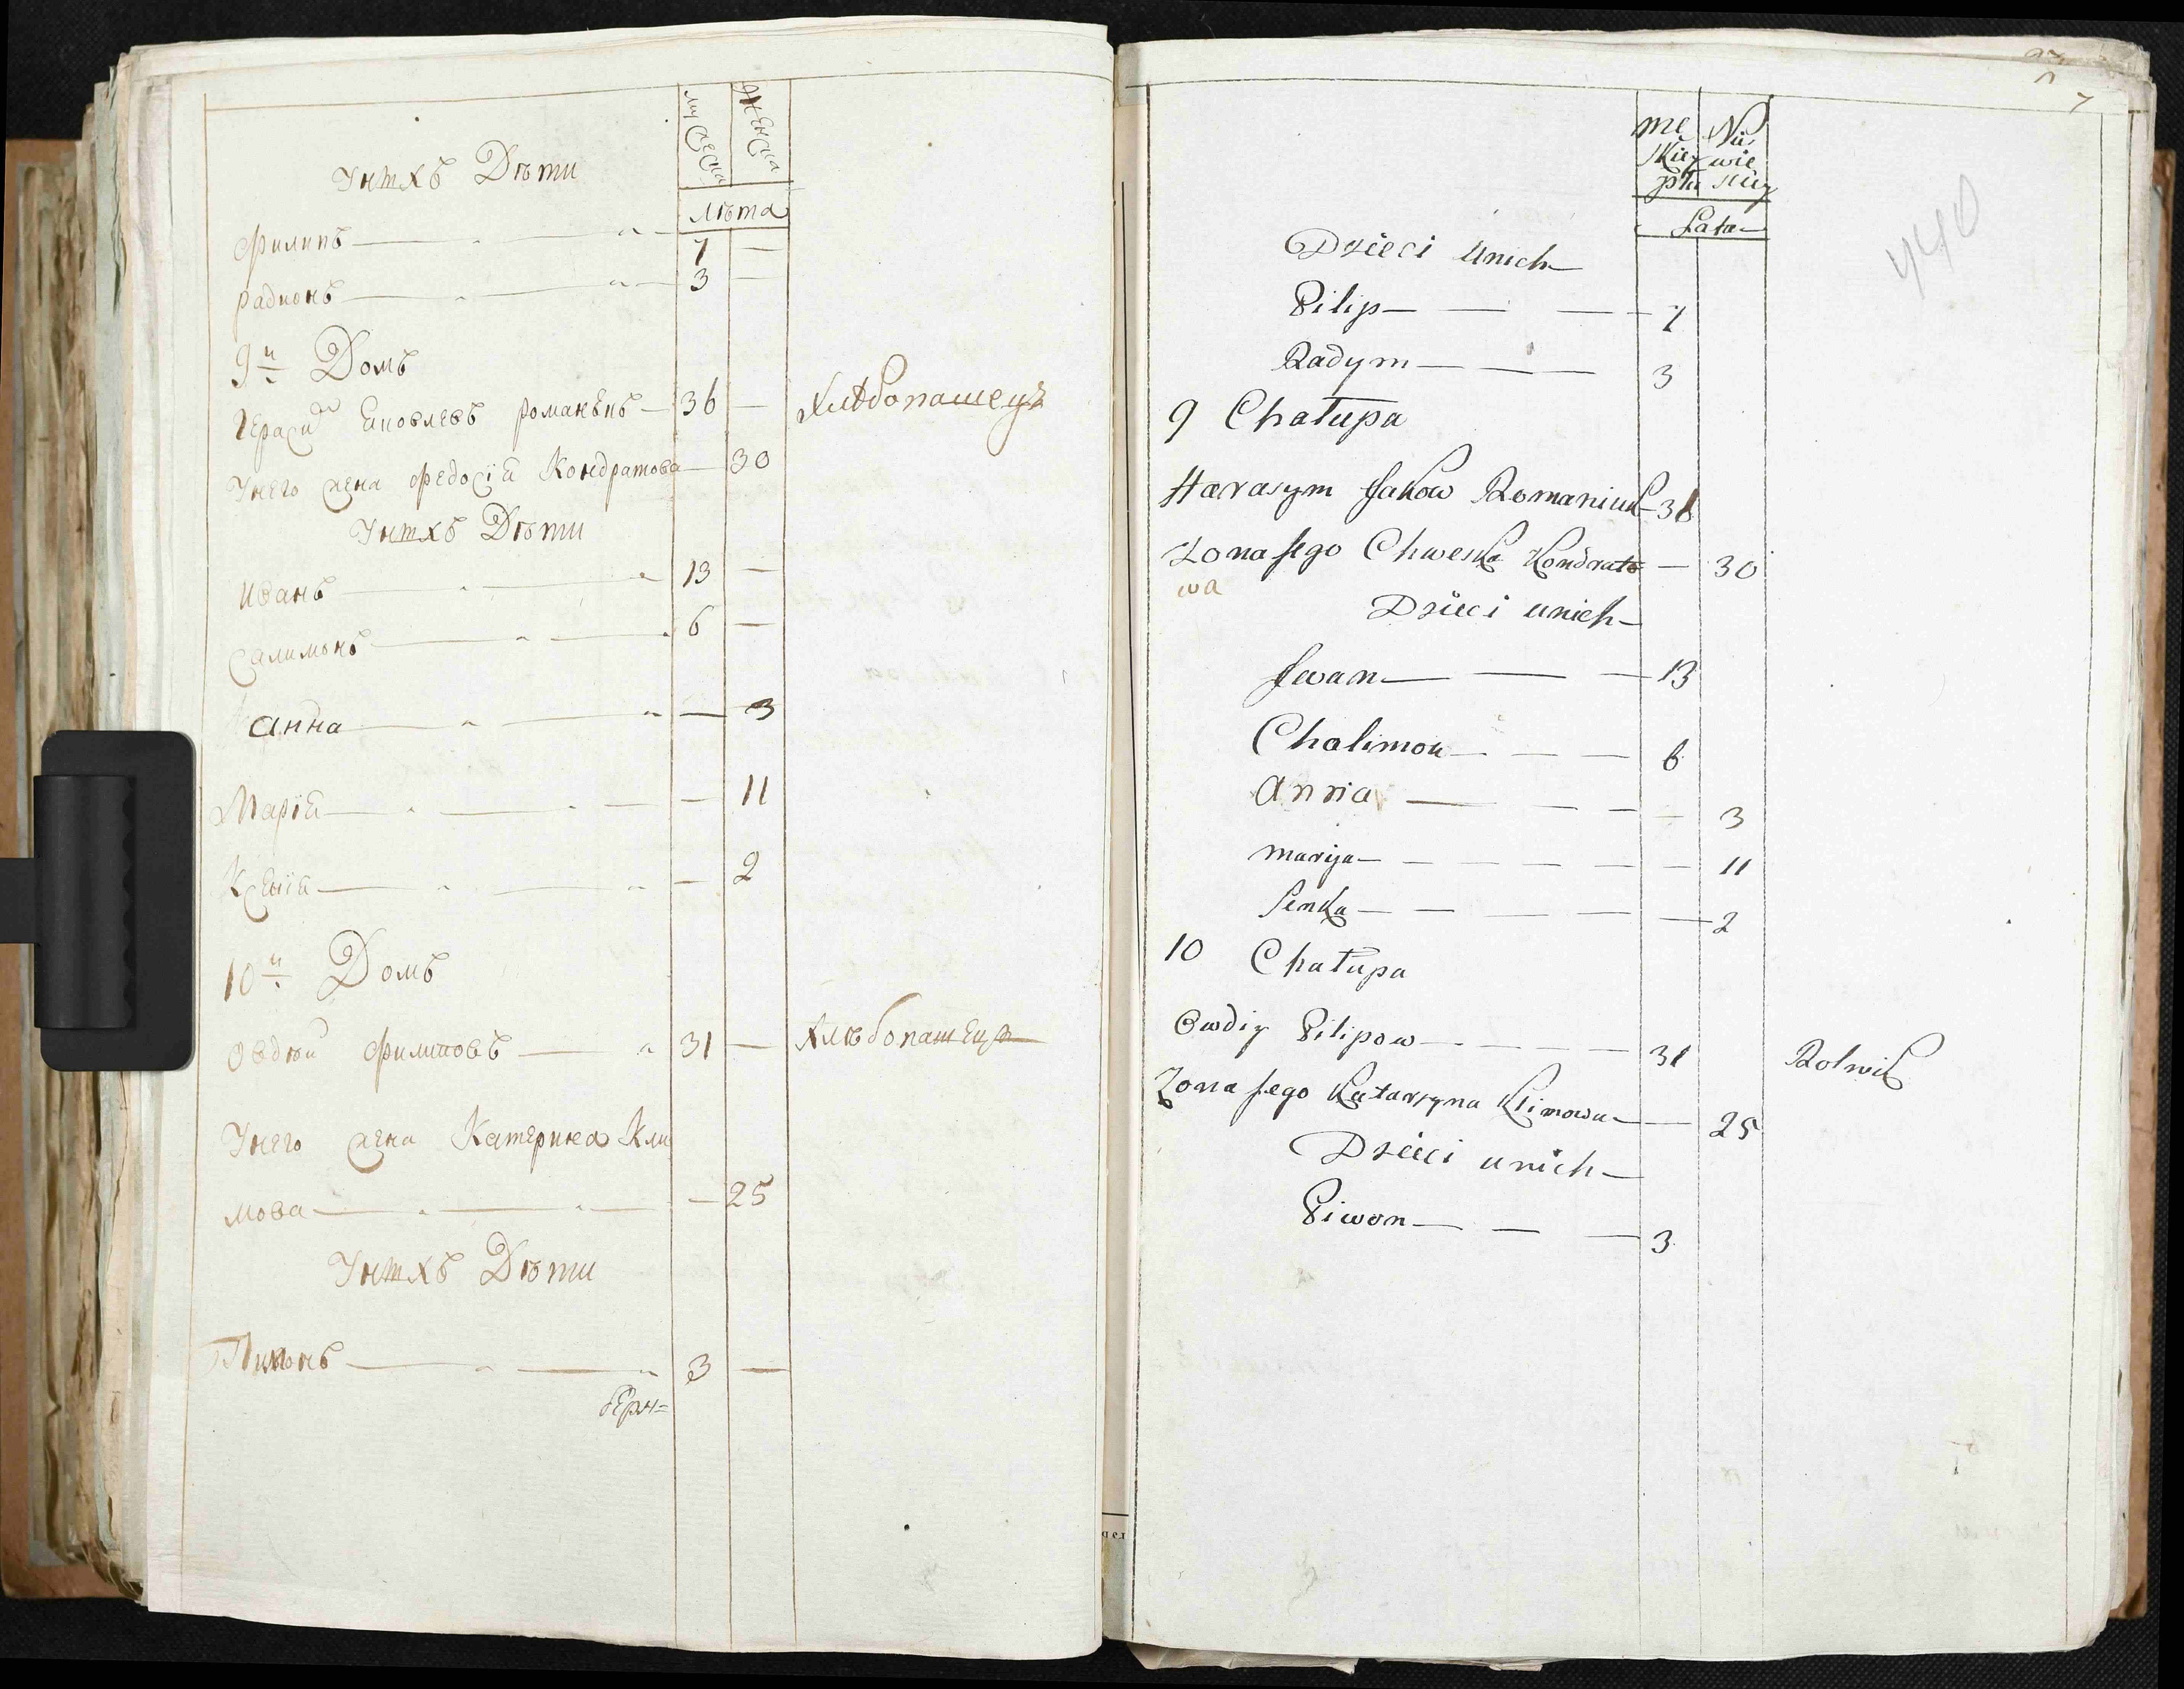 мужеска женска
Унихъ Дѣти
Лѣта
Филипъ 7 —
Радионъ 3 —
9й Домъ
Герасим Яковлевъ Романюкъ 36 — Хлѣбопашецъ
Унего жена Федосія Кондратова 30
Унихъ Дѣти
Иванъ 13 —
Салимонъ 6 —
Анна — 3
Марія — 11
Ксенія — 2
10й Домъ
Овдѣй Филиповъ 31 — Хлѣбопашецъ
Унего жена Катерина Кли
мова — 25
Унихъ Дѣти
Пивонъ 3 —
7
mę Nie
skiey wie
płci skiey
Lata
440
Dzieci unich
Pilip 7
Radym 3
9 Chałupa
Harasym Jakow Romaniuk 36
Zona jego Chweska Kondrato 30
wa
Dzieci unich
Iwan 13
Chalimon 6
Anna 3
Marija 11
Senka 2
10 Chałupa
Owdiy Pilipow 31 Rolnik
Zona jego Katarzyna Klimowa 25
Dzieci unich
Piwon 3